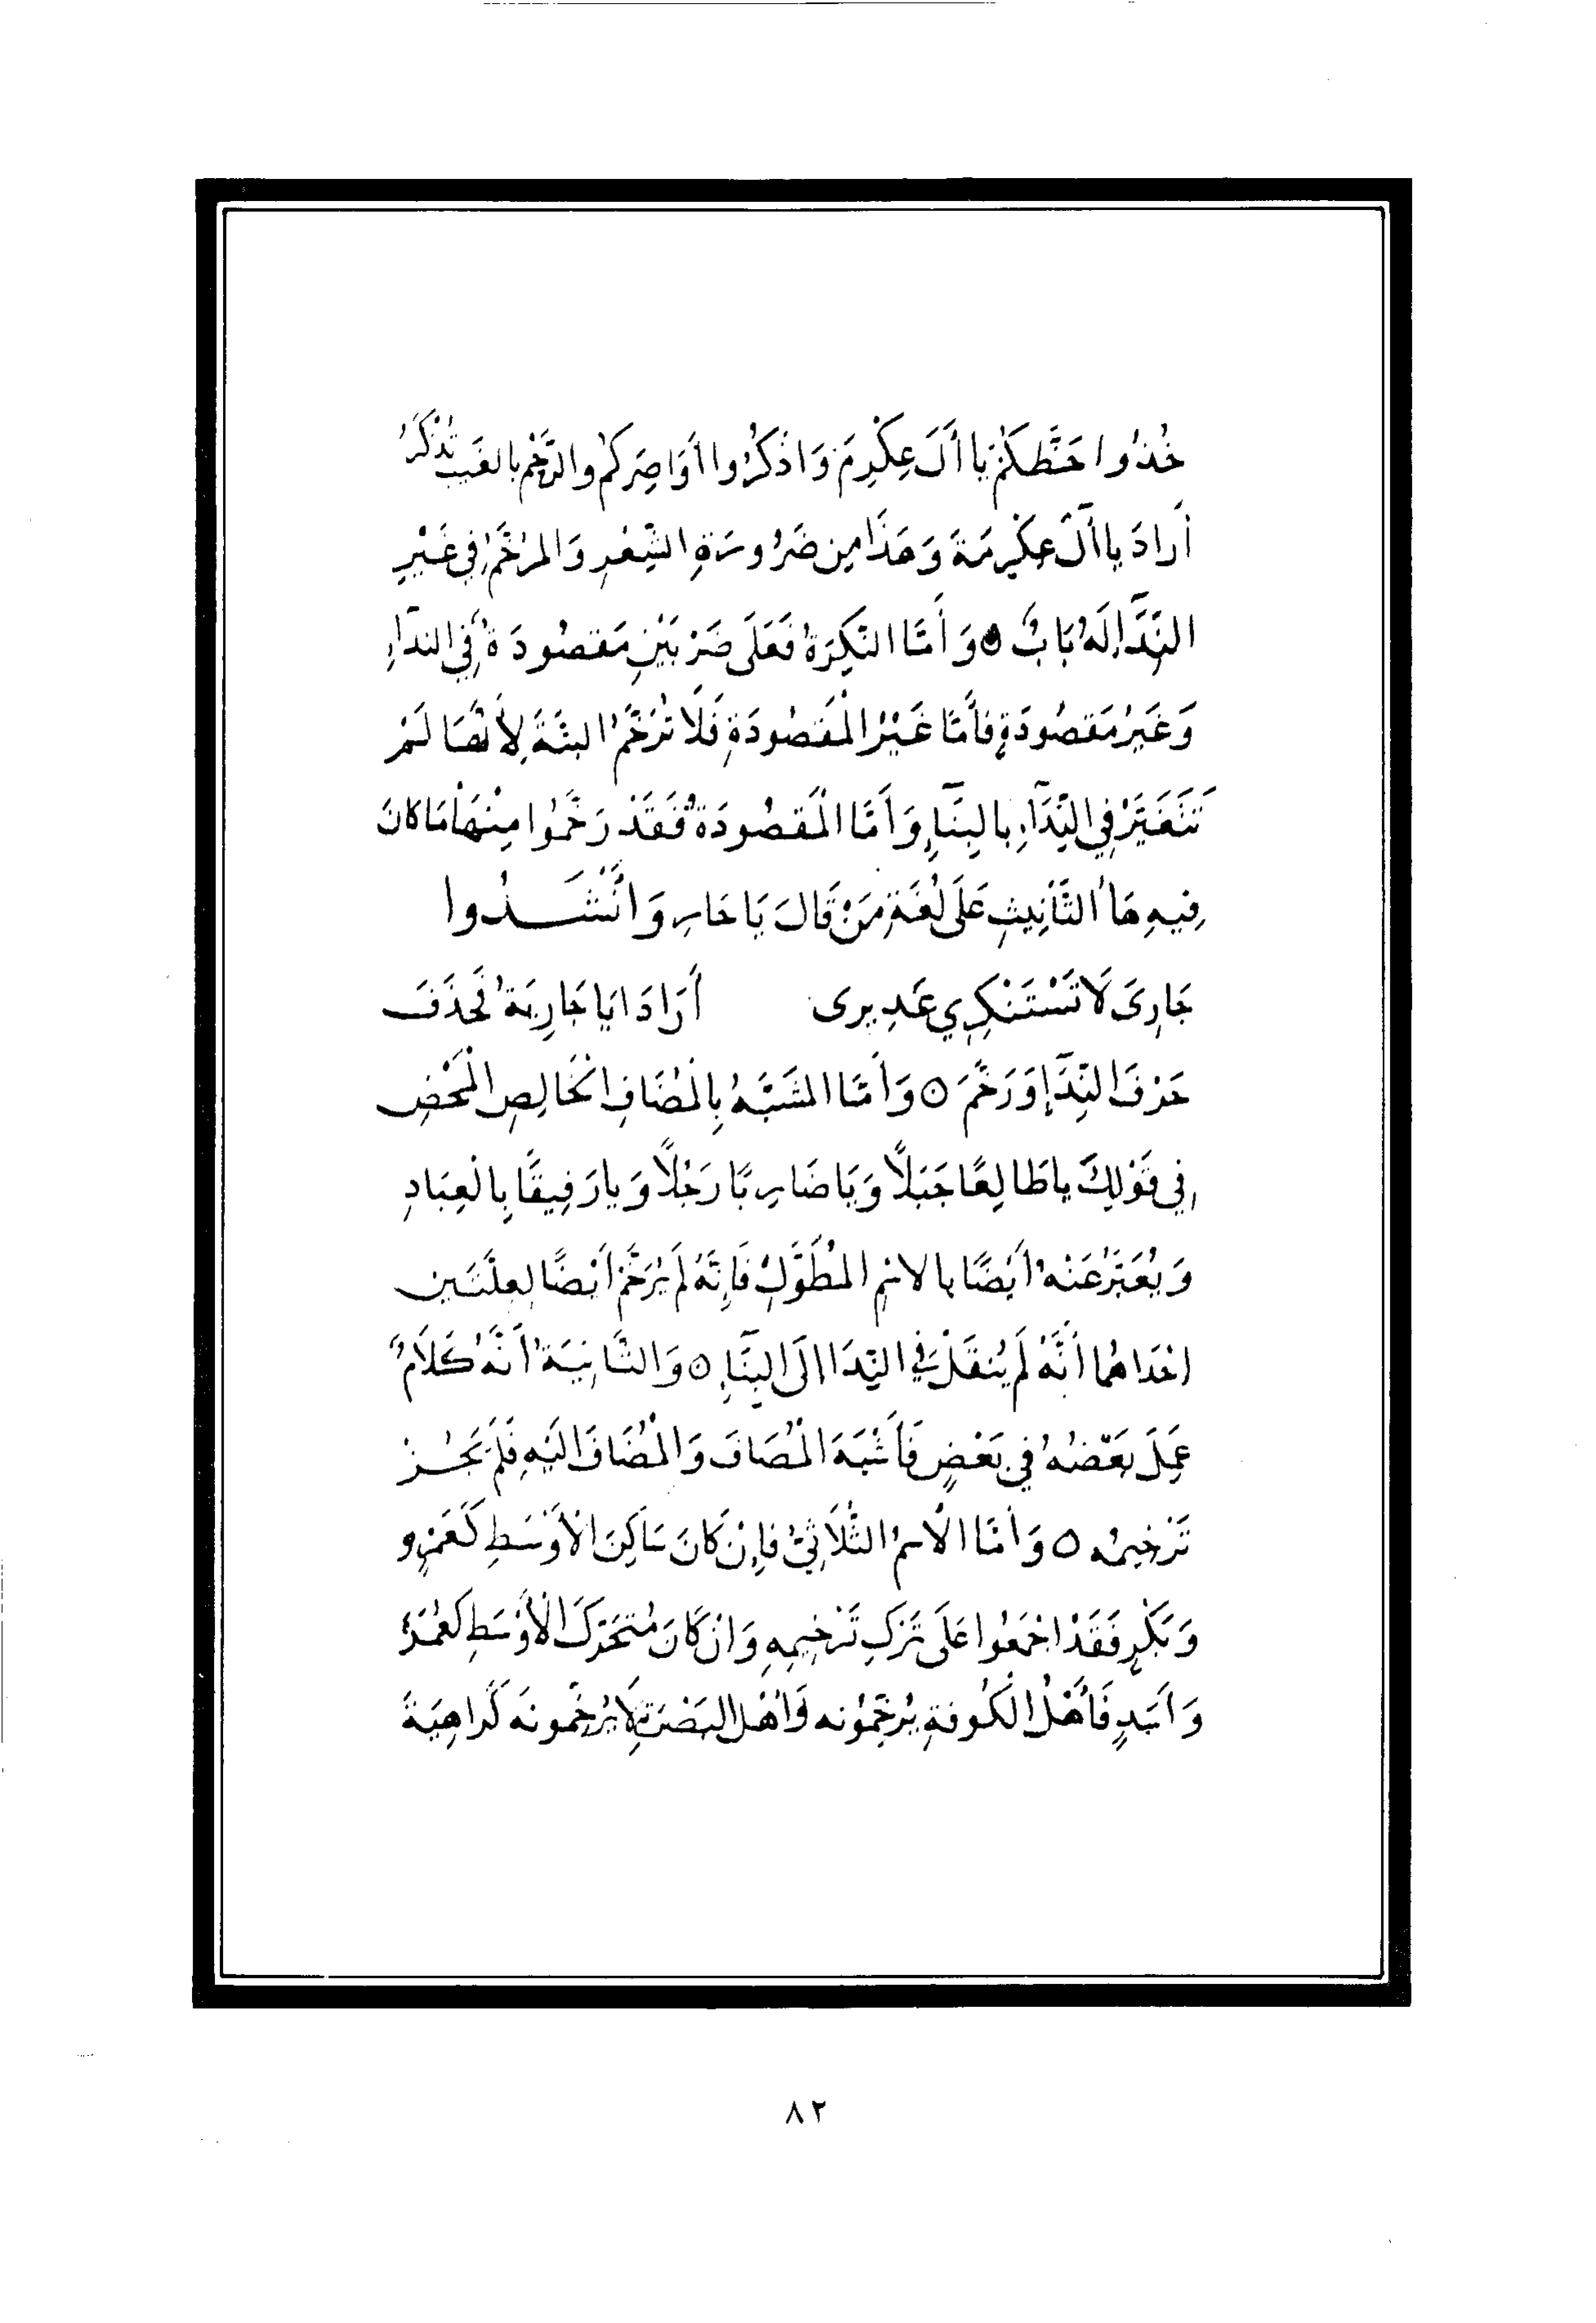 خُذُوا حَظَّكُمْ يَا اَلَ عِكْرِمَ وَاذْكُرُوا أَوَاصِرَكُمْ والرَّحْمِ بالغَيبِ تُذْكَرُ
أَرادَ يا اٰلَ عِكْرِمَةَ وَهَذَا مِن ضَرُورَةِ الشِّعْرِ وَالمُرَخَّمُ فِي غَيْرِ
النِّدَآءِ لَهُ بَابٌ ٥ وَأَمَّا النَّكِرَةُ فَعَلَى ضَرْبَيْنِ مَقصُودَةٌ فِي الندآءِ
وَغَيْرُ مَقصُودَةٍ فأَمَّا غَيْرُ الْمَقصُودَةِ فَلَا تُرَخَّمُ البتَّةَ لِأَنَّهَا لَمْ
تَتَغَيَّرْ فِي النِّدَآءِ بالبِنَآءِ وَأَمَّا الْمَقصُودَةُ فَقَدْ رَخَّمُوا مِنْهَا مَا كانَ
فِيهِ هَاءُ التَّأنِيثِ عَلَى لُغَةِ مَنْ قَالَ يَا حَارِ وَأَنْشَدُوا
جَارِىَ لَا تَسْتَنْكِرِي عَذِيرى أَرَادَ ايَا جَارِيَةُ فَحَذَفَ
حَرْفَ النِّدَآءِ وَرَخَّمَ ٥ وَأَمَّا المُشَبَّهُ بِالْمُضَافِ الخَالِصِ الْمَحْضِ
فِي قَوْلِكَ ياطَالِعًا جَبَلاً وَيَا ضَارِبًا رَجُلاً وَيارَفِيقًا بِالْعِبَادِ
وَيُعَبَّرُ عَنْهُ أَيْضًا بالاسْمِ المُطَوَّلِ فَإِنَّهُ لَمْ يُرَخَّمْ أَيْضًا لِعِلَّتَيْنِ
احْدَاهُمَا أَنَّهُ لَمْ يُنْقَلْ فِي النِّدَا الَى البِنَآءِ ٥ وَالثَّانِيَةُ أَنَّهُ كَلَامٌ
عَمِلَ بَعْضُهُ فِي بَعْضٍ فَأَشْبَهَ الْمُضَافَ وَالْمُضَافَ الَيْهِ فَلَمْ يَجُزْ
تَرْخِيمُه ٥ وَأَمَّا الْاسْمُ الثُّلَاثِيُّ فَإِنْ كَانَ سَاكِنَ الْأَوْسَطِ كَعَمْرٍو
وَبَكْرٍ فَقَدْ اجْمَعُوا عَلَى تَرْكِ تَرْخِيمِهِ وَانْ كَانَ مُتَحَرِّكَ الْأَوْسَطِ كَعُمَرَ
وَأَسَدٍ فَأَهْلُ الْكُوفةِ يُرَخِّمُونه وَأَهْل البَصْرَةِ لَا يُرَخِّمونَهُ كَرَاهِيَةَ
٨٢